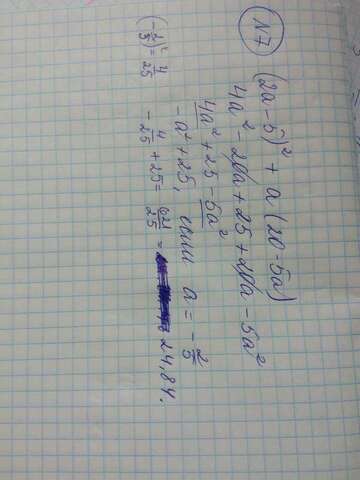 N7
(2a-5)² + a(20-5a)
4a² - 20a + 25 + 20a - 5a²
4a² + 25 - 5a²
-a² + 25, если a = -2/5
-4/25 + 25 = 621/25 = 24,84.
(-2/5)² = 4/25